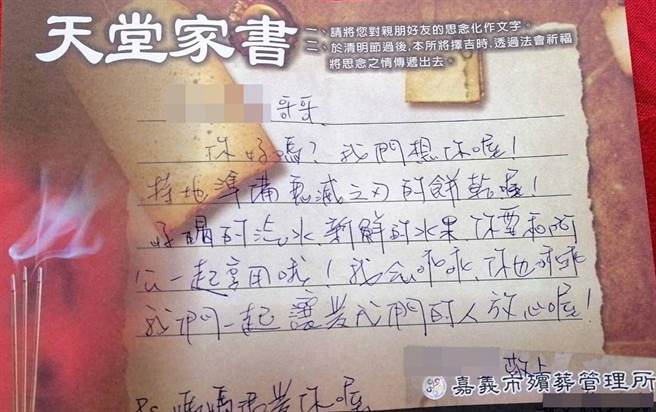 天堂家書
一、請將您對親朋好友的思念化作文字。
二、於清明節過後,本所將擇吉時,透過法會祈福
將思念之情傳遞出去。
哥哥
你好嗎?我們想你喔!
特地準備惡滅之刃的餅乾喔!
好喝的汽水、新鮮的水果、你要和阿
公一起享用哦!我会乖乖,你也乖乖
我們一起讓愛我們的人放心喔!
敬上
嘉義市殯葬管理所
Ps 媽媽很愛你喔